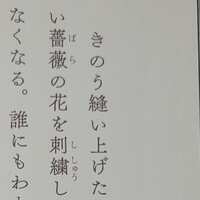 きのう縫い上げた
い薔薇の花を刺繍し
なくなる。誰にもわ